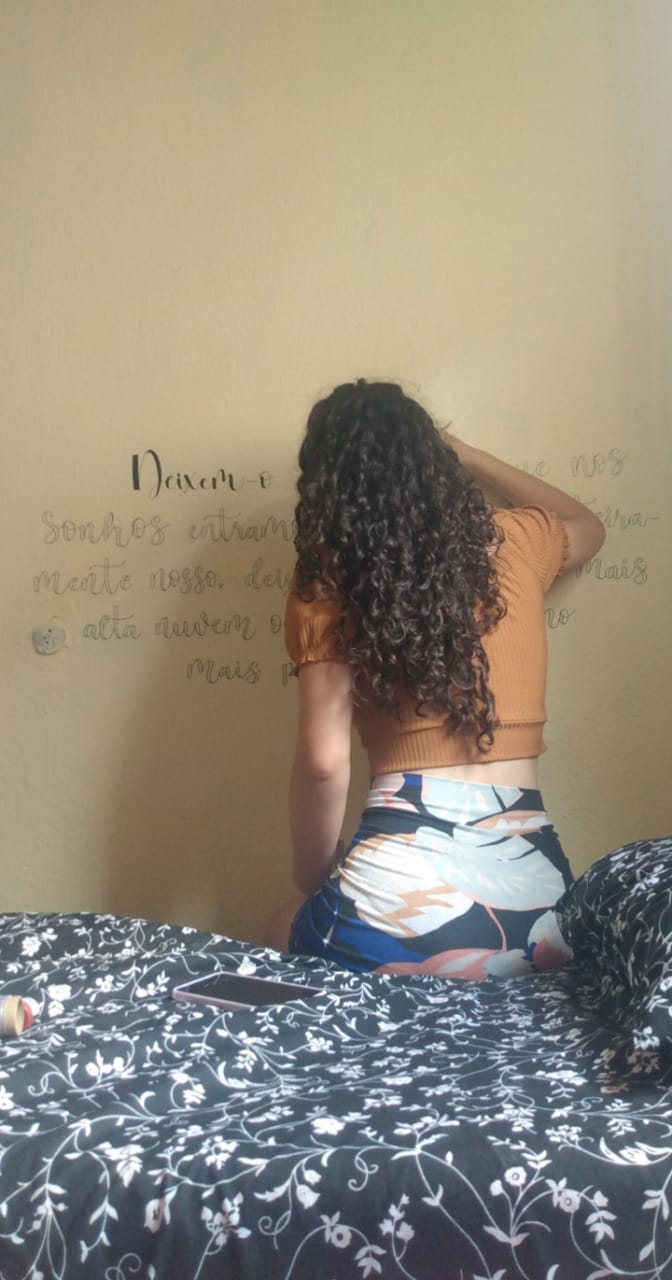 Deixem-o que nos
Sonhos entramo
mente nosso, mais
alta nuvem o no
Mais p